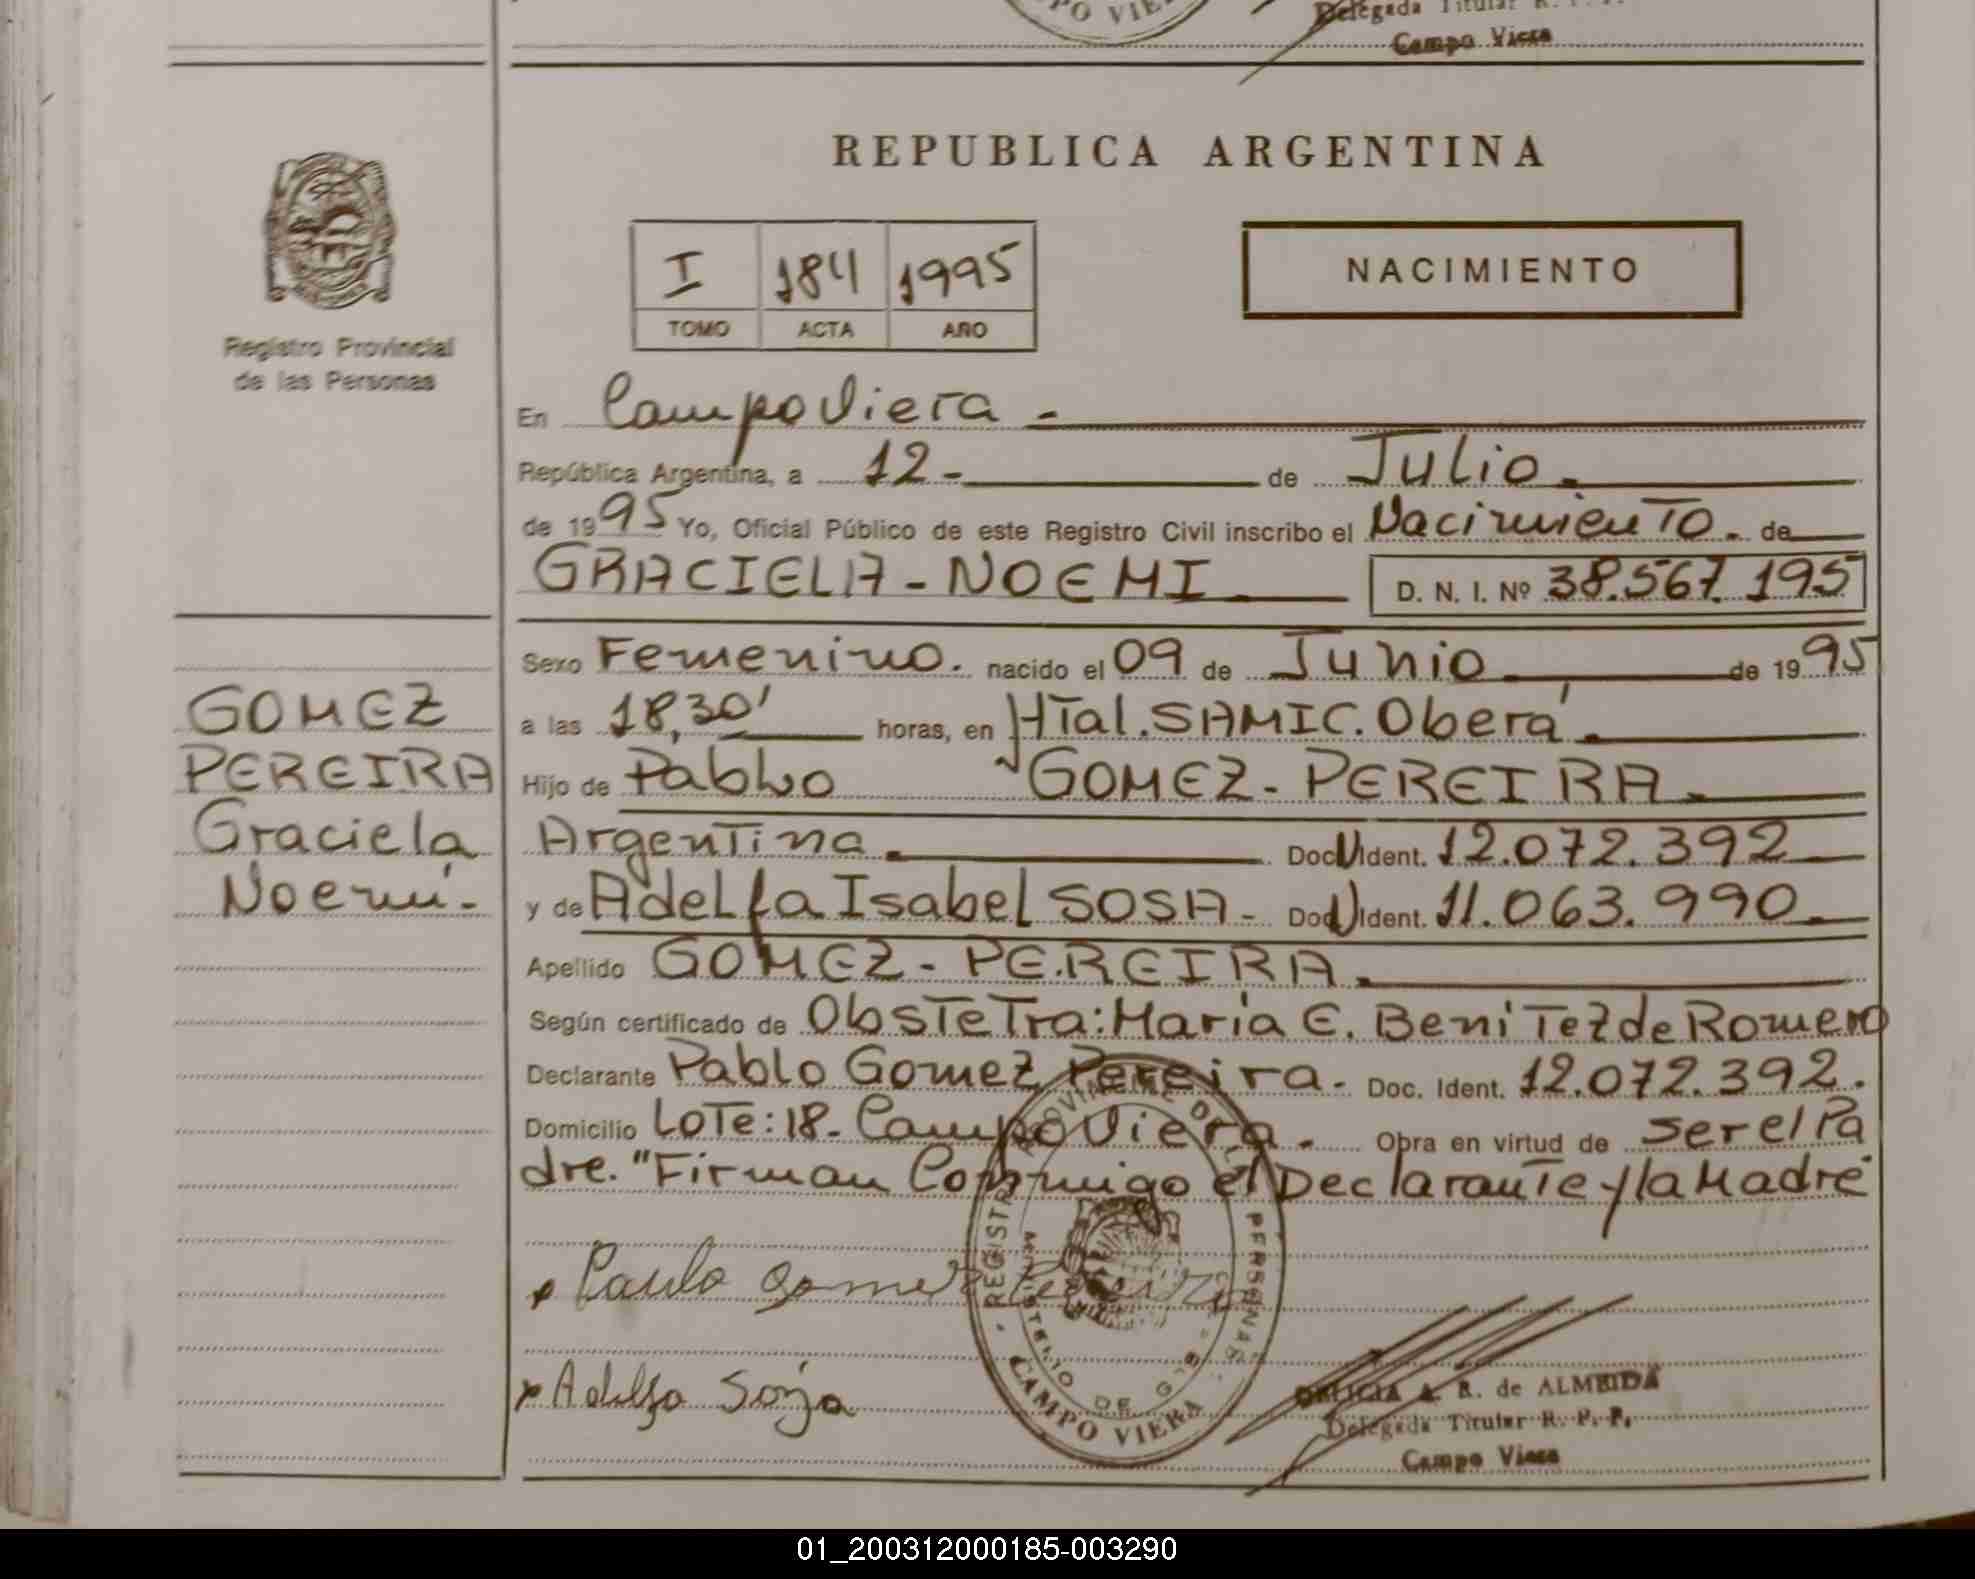 PO VIE
Delegada Titular R. P. P.
Campo Viera
REPUBLICA ARGENTINA
I 184 1995
TOMO ACTA AÑO
NACIMIENTO
Registro Provincial
de las Personas
En Campo Viera -
República Argentina, a 12- de Julio.
de 1995 Yo, Oficial Público de este Registro Civil inscribo el Nacimiento. de
GRACIELA-NOEMI D. N. I. Nº 38.567.195
Sexo Femenino. nacido el 09 de Junio de 1995
a las 18,30' horas, en Htal. SAMIC. Oberá.
Hijo de Pablo GOMEZ-PEREIRA.
Argentina. Doc. Ident. 12.072.392
y de Adelfa Isabel SOSA- Doc. Ident. 11.063.990.
Apellido GOMEZ-PEREIRA.
Según certificado de Obstetra: María E. Benitez de Romero
Declarante Pablo Gomez Pereira. Doc. Ident. 12.072.392.
Domicilio Lote: 18- Campo Viera. Obra en virtud de ser el Pa
dre. "Firman Conmigo el Declarante y la Madre
GOMEZ
PEREIRA
Graciela
Noemí.-
x Paulo Gomez Pereira
x Adelfa Sosa
REGISTRO PROVINCIAL DE PERSONAS
MINISTERIO DE G
CAMPO VIERA
DELICIA A. R. de ALMEIDA
Delegada Titular R. P. P.
Campo Viera
01_200312000185-003290